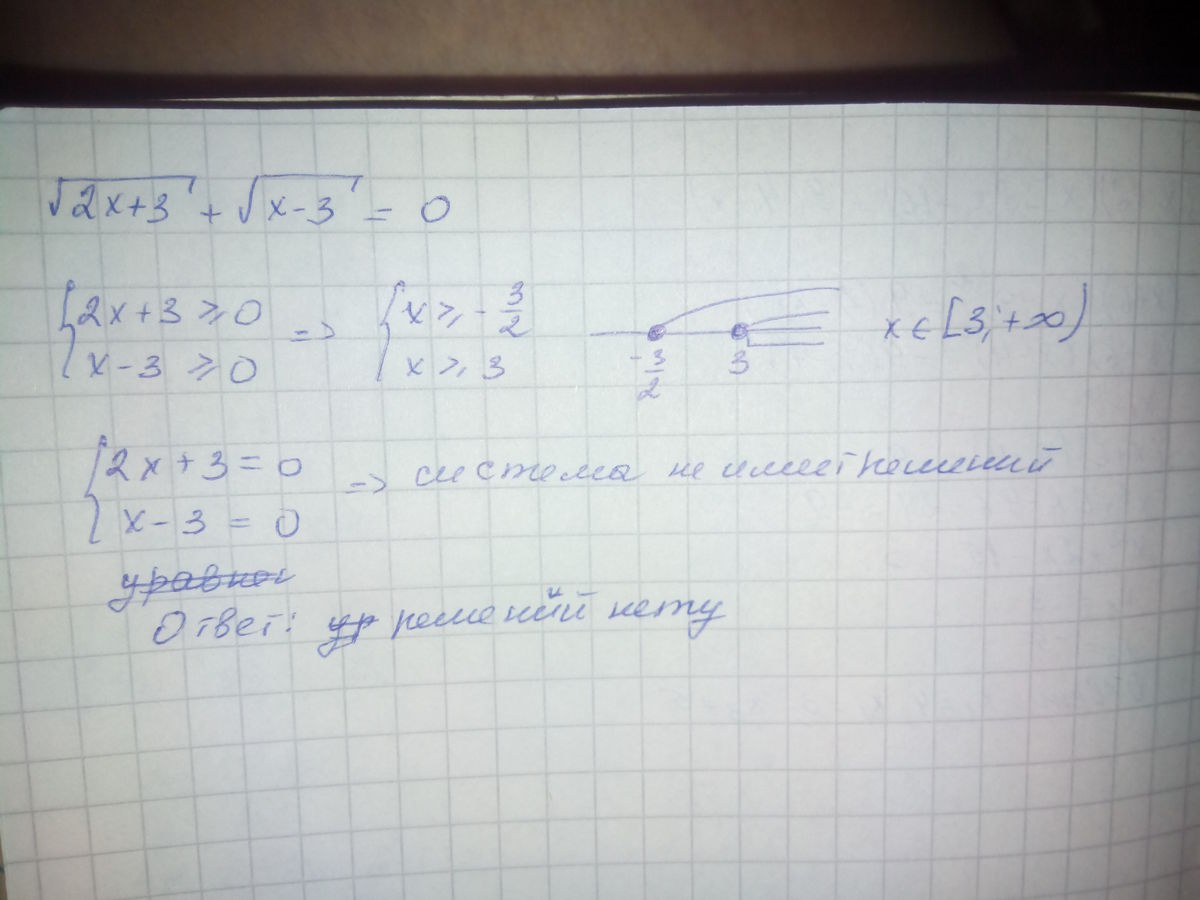 √2x+3 + √x-3 = 0
{2x+3 ⩾ 0 => {x ⩾ -3/2 x ∈ [3; +∞)
x-3 ⩾ 0 x ⩾ 3 -3/2 3
{2x+3 = 0 => система не имеет решений
x-3 = 0
уравне
Ответ: ур решений нету